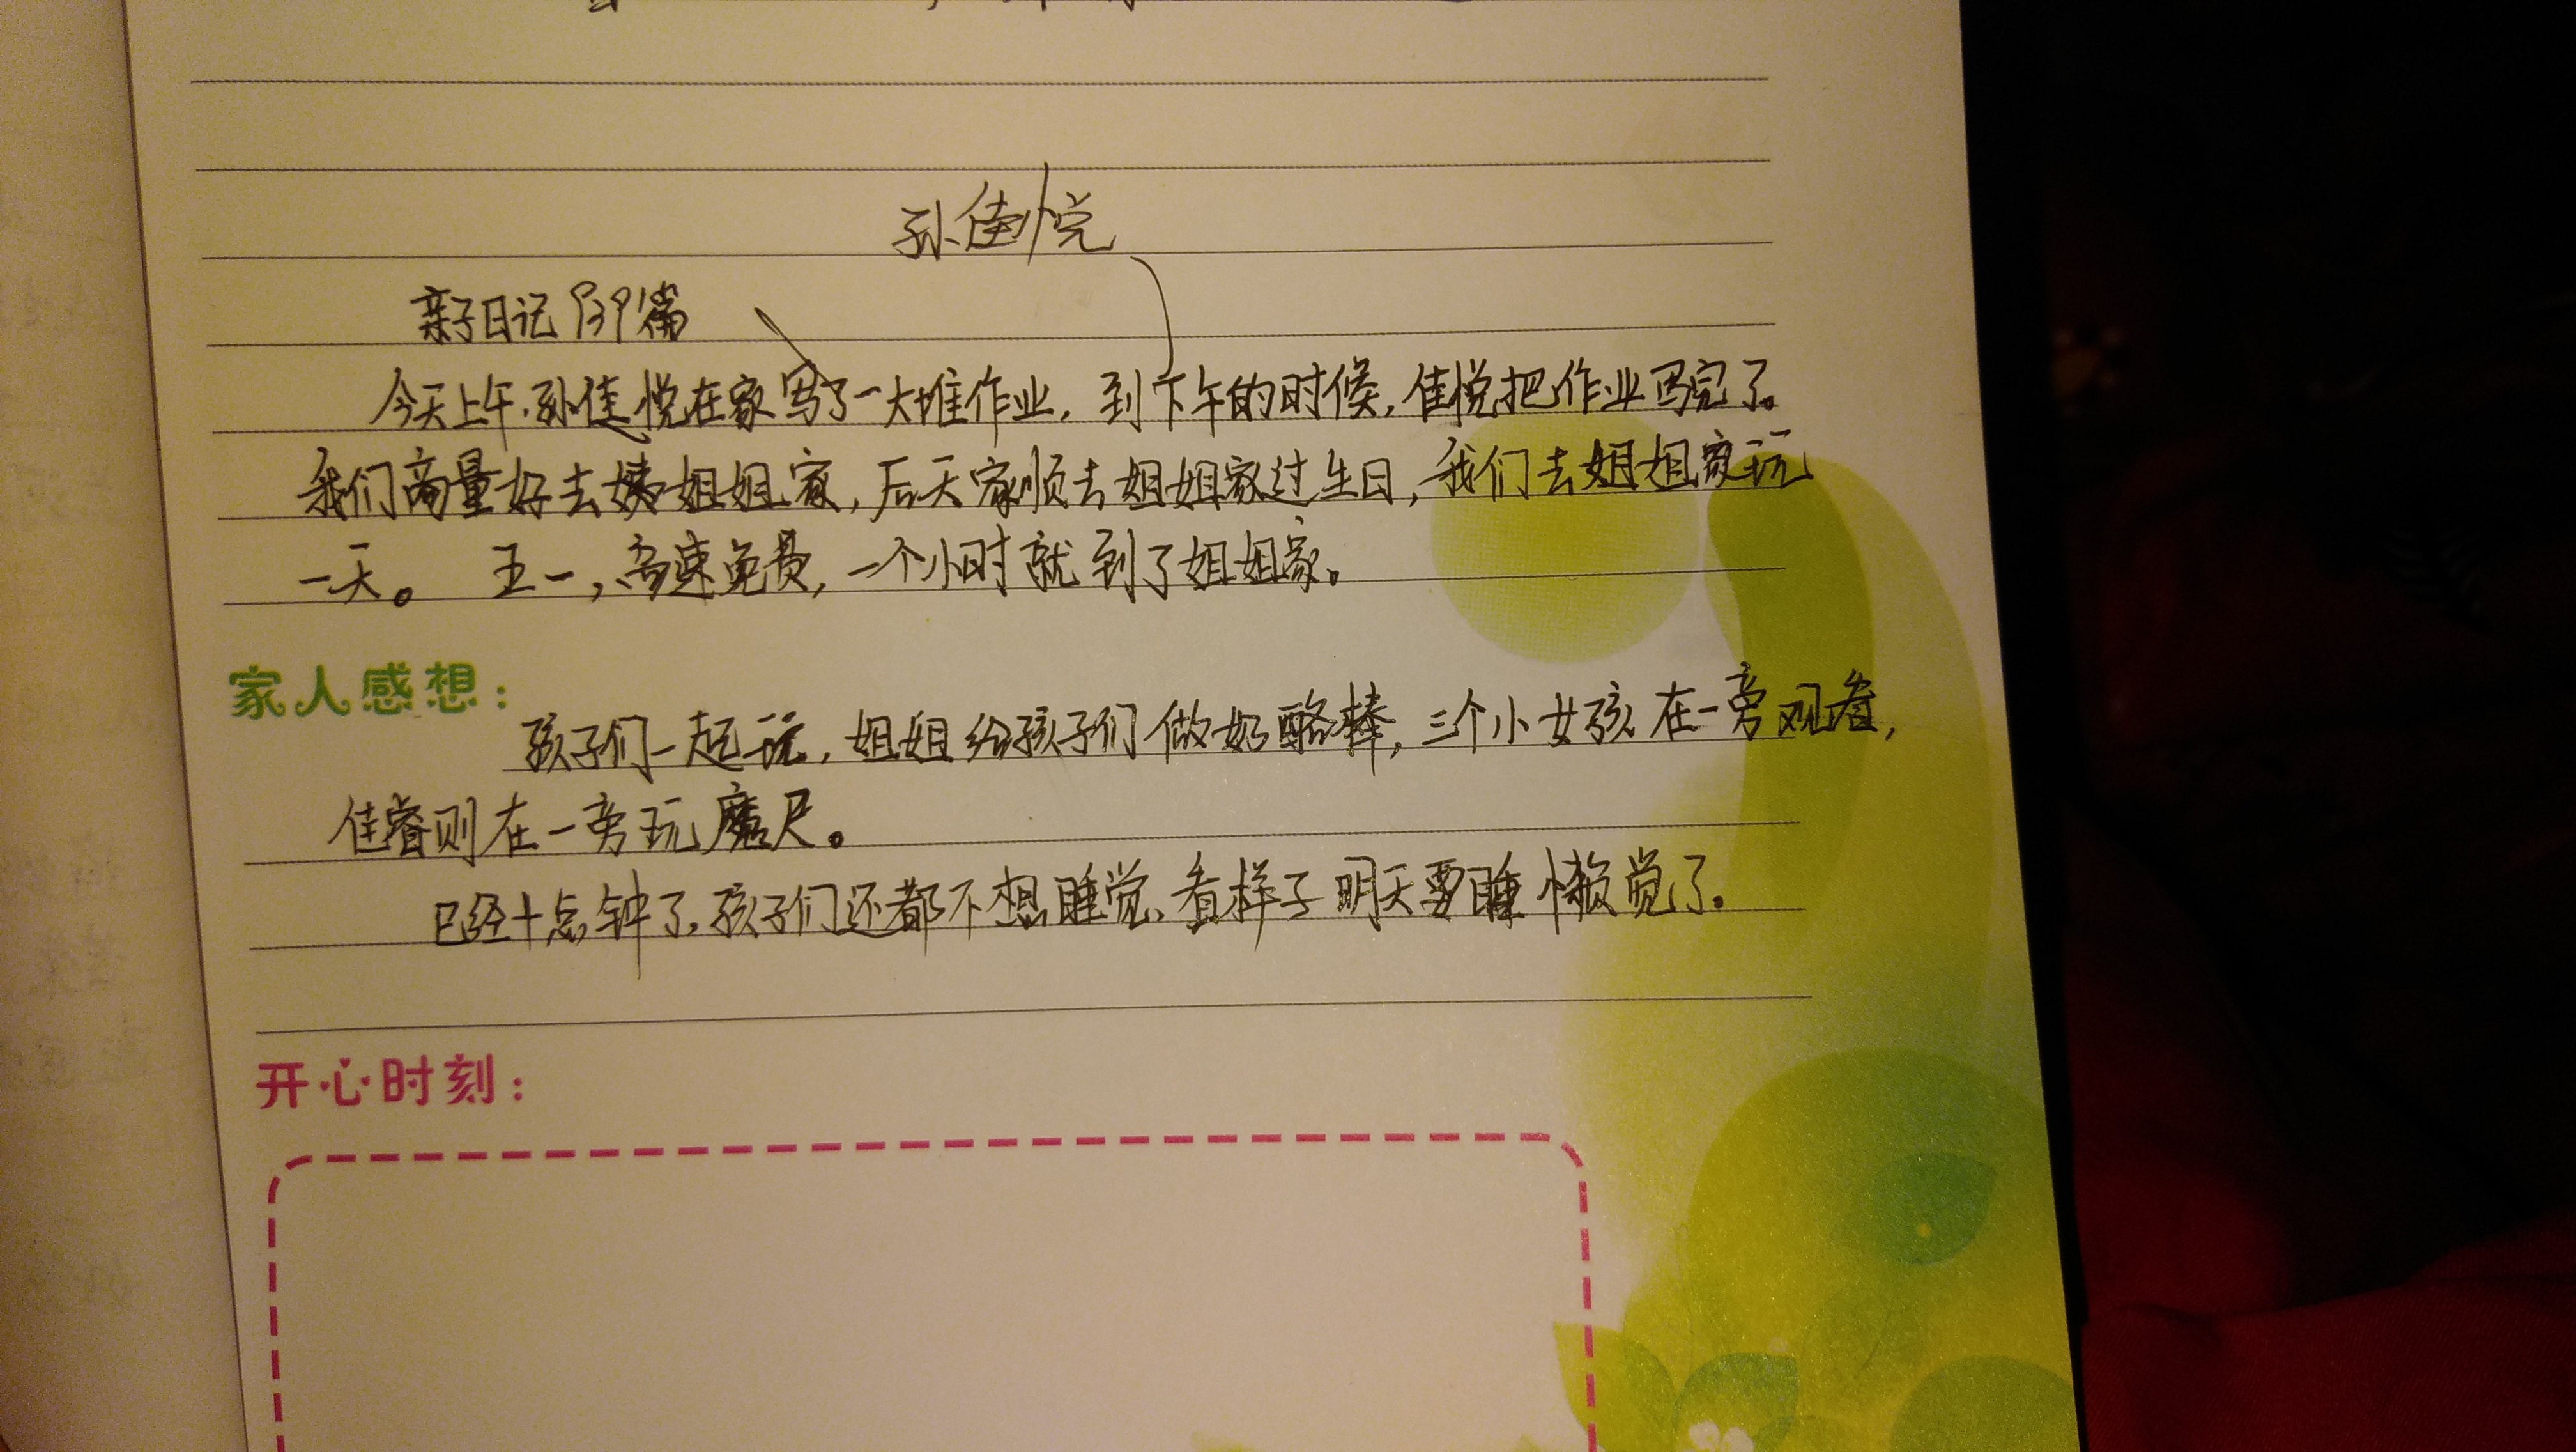 孙佳悦
亲子日记139篇
今天上午,孙佳悦在家写了一大堆作业,到下午的时候,佳悦把作业写完了。
我们商量好去姨姐姐家,后天家顺去姐姐家过生日,我们去姐姐家玩
一天。 五一,高速免费,一个小时就到了姐姐家。
家人感想:
孩子们一起玩,姐姐给孩子们做奶酪棒,三个小女孩在一旁观看,
佳睿则在一旁玩魔尺。
已经十点钟了,孩子们还都不想睡觉、看样子明天要睡懒觉了.
开心时刻: